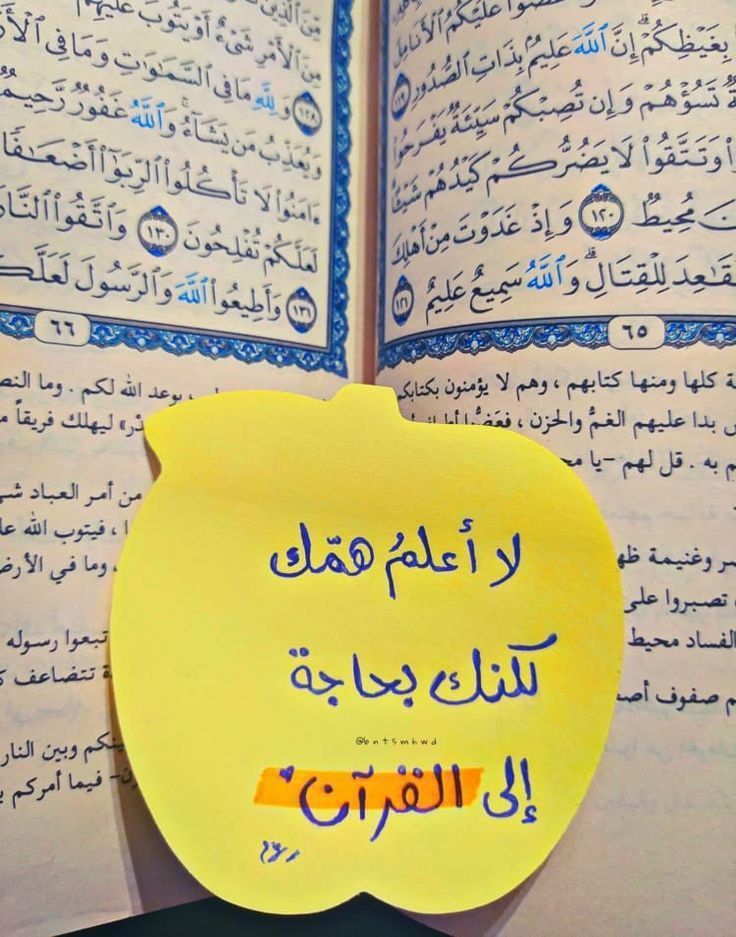 عَضُّوا۟ عَلَيْكُمُ ٱلْأَنَامِلَ
بِغَيْظِكُمْ ۗ إِنَّ ٱللَّهَ عَلِيمٌۢ بِذَاتِ ٱلصُّدُورِ ١١٩
تَسُؤْهُمْ وَإِن تُصِبْكُمْ سَيِّئَةٌ يَفْرَحُوا۟
وَتَتَّقُوا۟ لَا يَضُرُّكُمْ كَيْدُهُمْ شَيْـًٔا
مُحِيطٌ ١٢٠ وَإِذْ غَدَوْتَ مِنْ أَهْلِكَ
لِلْقِتَالِ ۗ وَٱللَّهُ سَمِيعٌ عَلِيمٌ ١٢١
٦٥
كلها ومنها كتابهم ، وهم لا يؤمنون بكتابكم
بدا عليهم الغمُّ والحزن ، فعَضُّوا
به . قل لهم –يا
وغنيمة
تصبروا على
الفساد محيط
صفوف
مِنَ ٱلْأَمْرِ شَىْءٌ أَوْ يَتُوبَ عَلَيْهِمْ
١٢٨ وَلِلَّهِ مَا فِى ٱلسَّمَٰوَٰتِ وَمَا فِى
وَيُعَذِّبُ مَن يَشَآءُ ۚ وَٱللَّهُ غَفُورٌ رَّحِيمٌ
ءَامَنُوا۟ لَا تَأْكُلُوا۟ ٱلرِّبَوٰٓا۟ أَضْعَٰفًا
لَعَلَّكُمْ تُفْلِحُونَ ١٣٠ وَٱتَّقُوا۟ ٱلنَّارَ
١٣١ وَأَطِيعُوا۟ ٱللَّهَ وَٱلرَّسُولَ
٦٦
بوعد الله لكم . وما
ليهلك فريقاً
من أمر العباد
، فيتوب الله
، وما في
تبعوا رسوله
تتضاعف
وبين النار
– فيما أمركم
لا أعلمُ همّك
لكنك بحاجة
@bntsmhwd
إلى القرآن